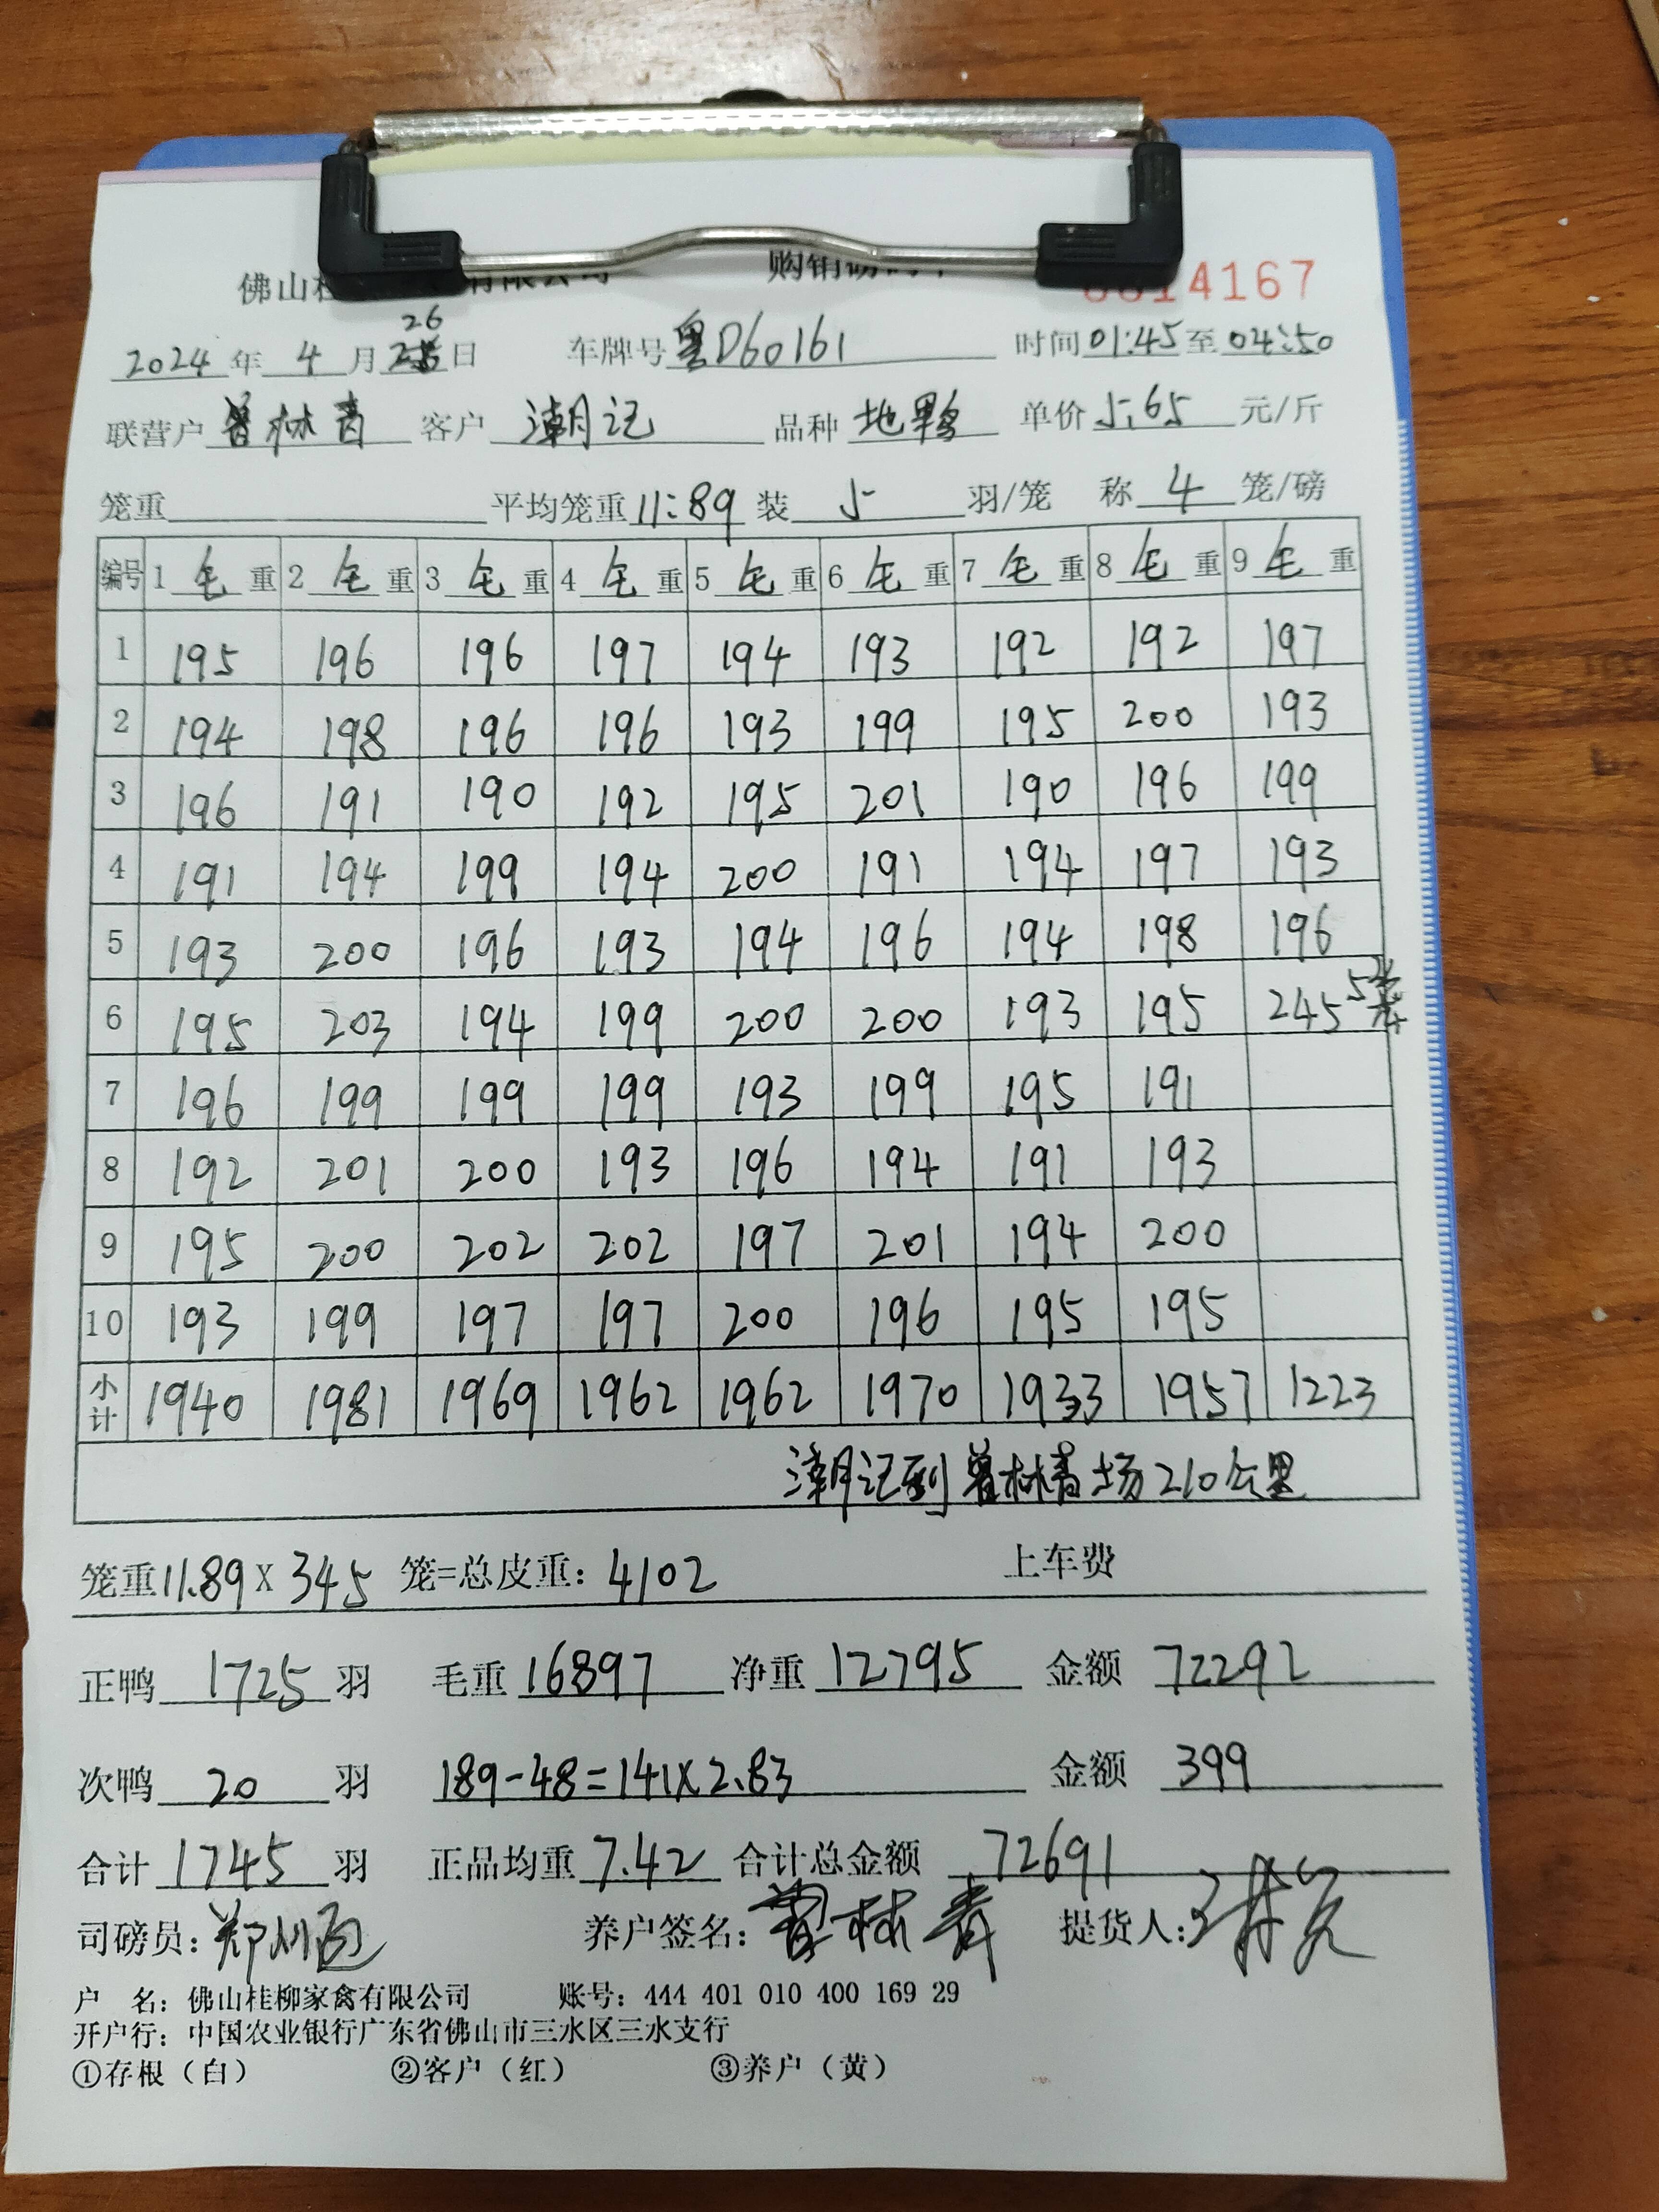 佛山桂
4167
2024 年 4 月 26 日 车牌号 粤D60161 时间 01:45 至 04:50
联营户 曾林青 客户 潮记 品种 地鸭 单价 5.65 元/斤
笼重 平均笼重 11:89 装 5 羽/笼 称 4 笼/磅
编号 1 毛 重 2 毛 重 3 毛 重 4 毛 重 5 毛 重 6 毛 重 7 毛 重 8 毛 重 9 毛 重
1 195 196 196 197 194 193 192 192 197
2 194 198 196 196 193 199 195 200 193
3 196 191 190 192 195 201 190 196 199
4 191 194 199 194 200 191 194 197 193
5 193 200 196 193 194 196 194 198 196
6 195 203 194 199 200 200 193 195 245 5
7 196 199 199 199 193 199 195 191
8 192 201 200 193 196 194 191 193
9 195 200 202 202 197 201 194 200
10 193 199 197 197 200 196 195 195
小计 1940 1981 1969 1962 1962 1970 1933 1957 1223
潮记到曾林青场210公里
笼重 11.89 X 345 笼=总皮重: 4102 上车费
正鸭 1725 羽 毛重 16897 净重 12795 金额 72292
次鸭 20 羽 189-48=141X2.83 金额 399
合计 1745 羽 正品均重 7.42 合计总金额 72691
司磅员: 养户签名: 曾林青 提货人:
户 名: 佛山桂柳家禽有限公司 账号: 444 401 010 400 169 29
开户行: 中国农业银行广东省佛山市三水区三水支行
①存根（白） ②客户（红） ③养户（黄）